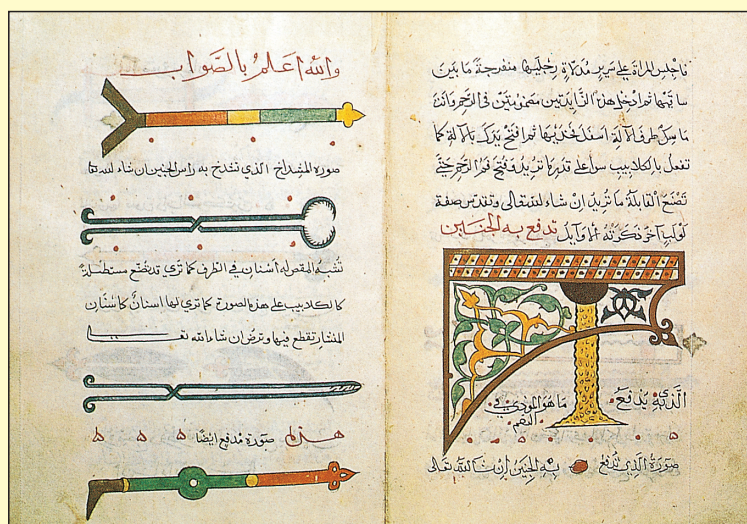 فاجلس المراة علي سرير مدلاة رجليها منفرجة ما بين
ساقيها ثم ادخل هذه الزايدتين مضمومتين في الرحم وانت
ماسك طرف الالة اسفل فخذيها ثم افتح يدك بالالة كما
تفعل بالكلاليب سواء علي قدر ما تريد فتح فم الرحم حتي
تصنع القابلة ما تريد ان شاء الله تعالى صفة
لولب اخر ذكرته الاوايل تدفع به الجنين
الذي يدفع ما هو الموذي في
الفم
صورة الذي تدفع به الجنين ان شاء الله تعالى
والله اعلم بالصواب
صورة المشداخ الذي تشدخ به راس الجنين ان شاء الله تعا
تشبه المقص له اسنان في الطرف كما تري قد تصنع مستطيلة
كالكلاليب علي هذه الصورة كما تري لها اسنان كاسنان
المنشار تقطع فيها وترض ان شاء الله تعا
هذه صورة مدفع ايضا ۵ ۵ ۵